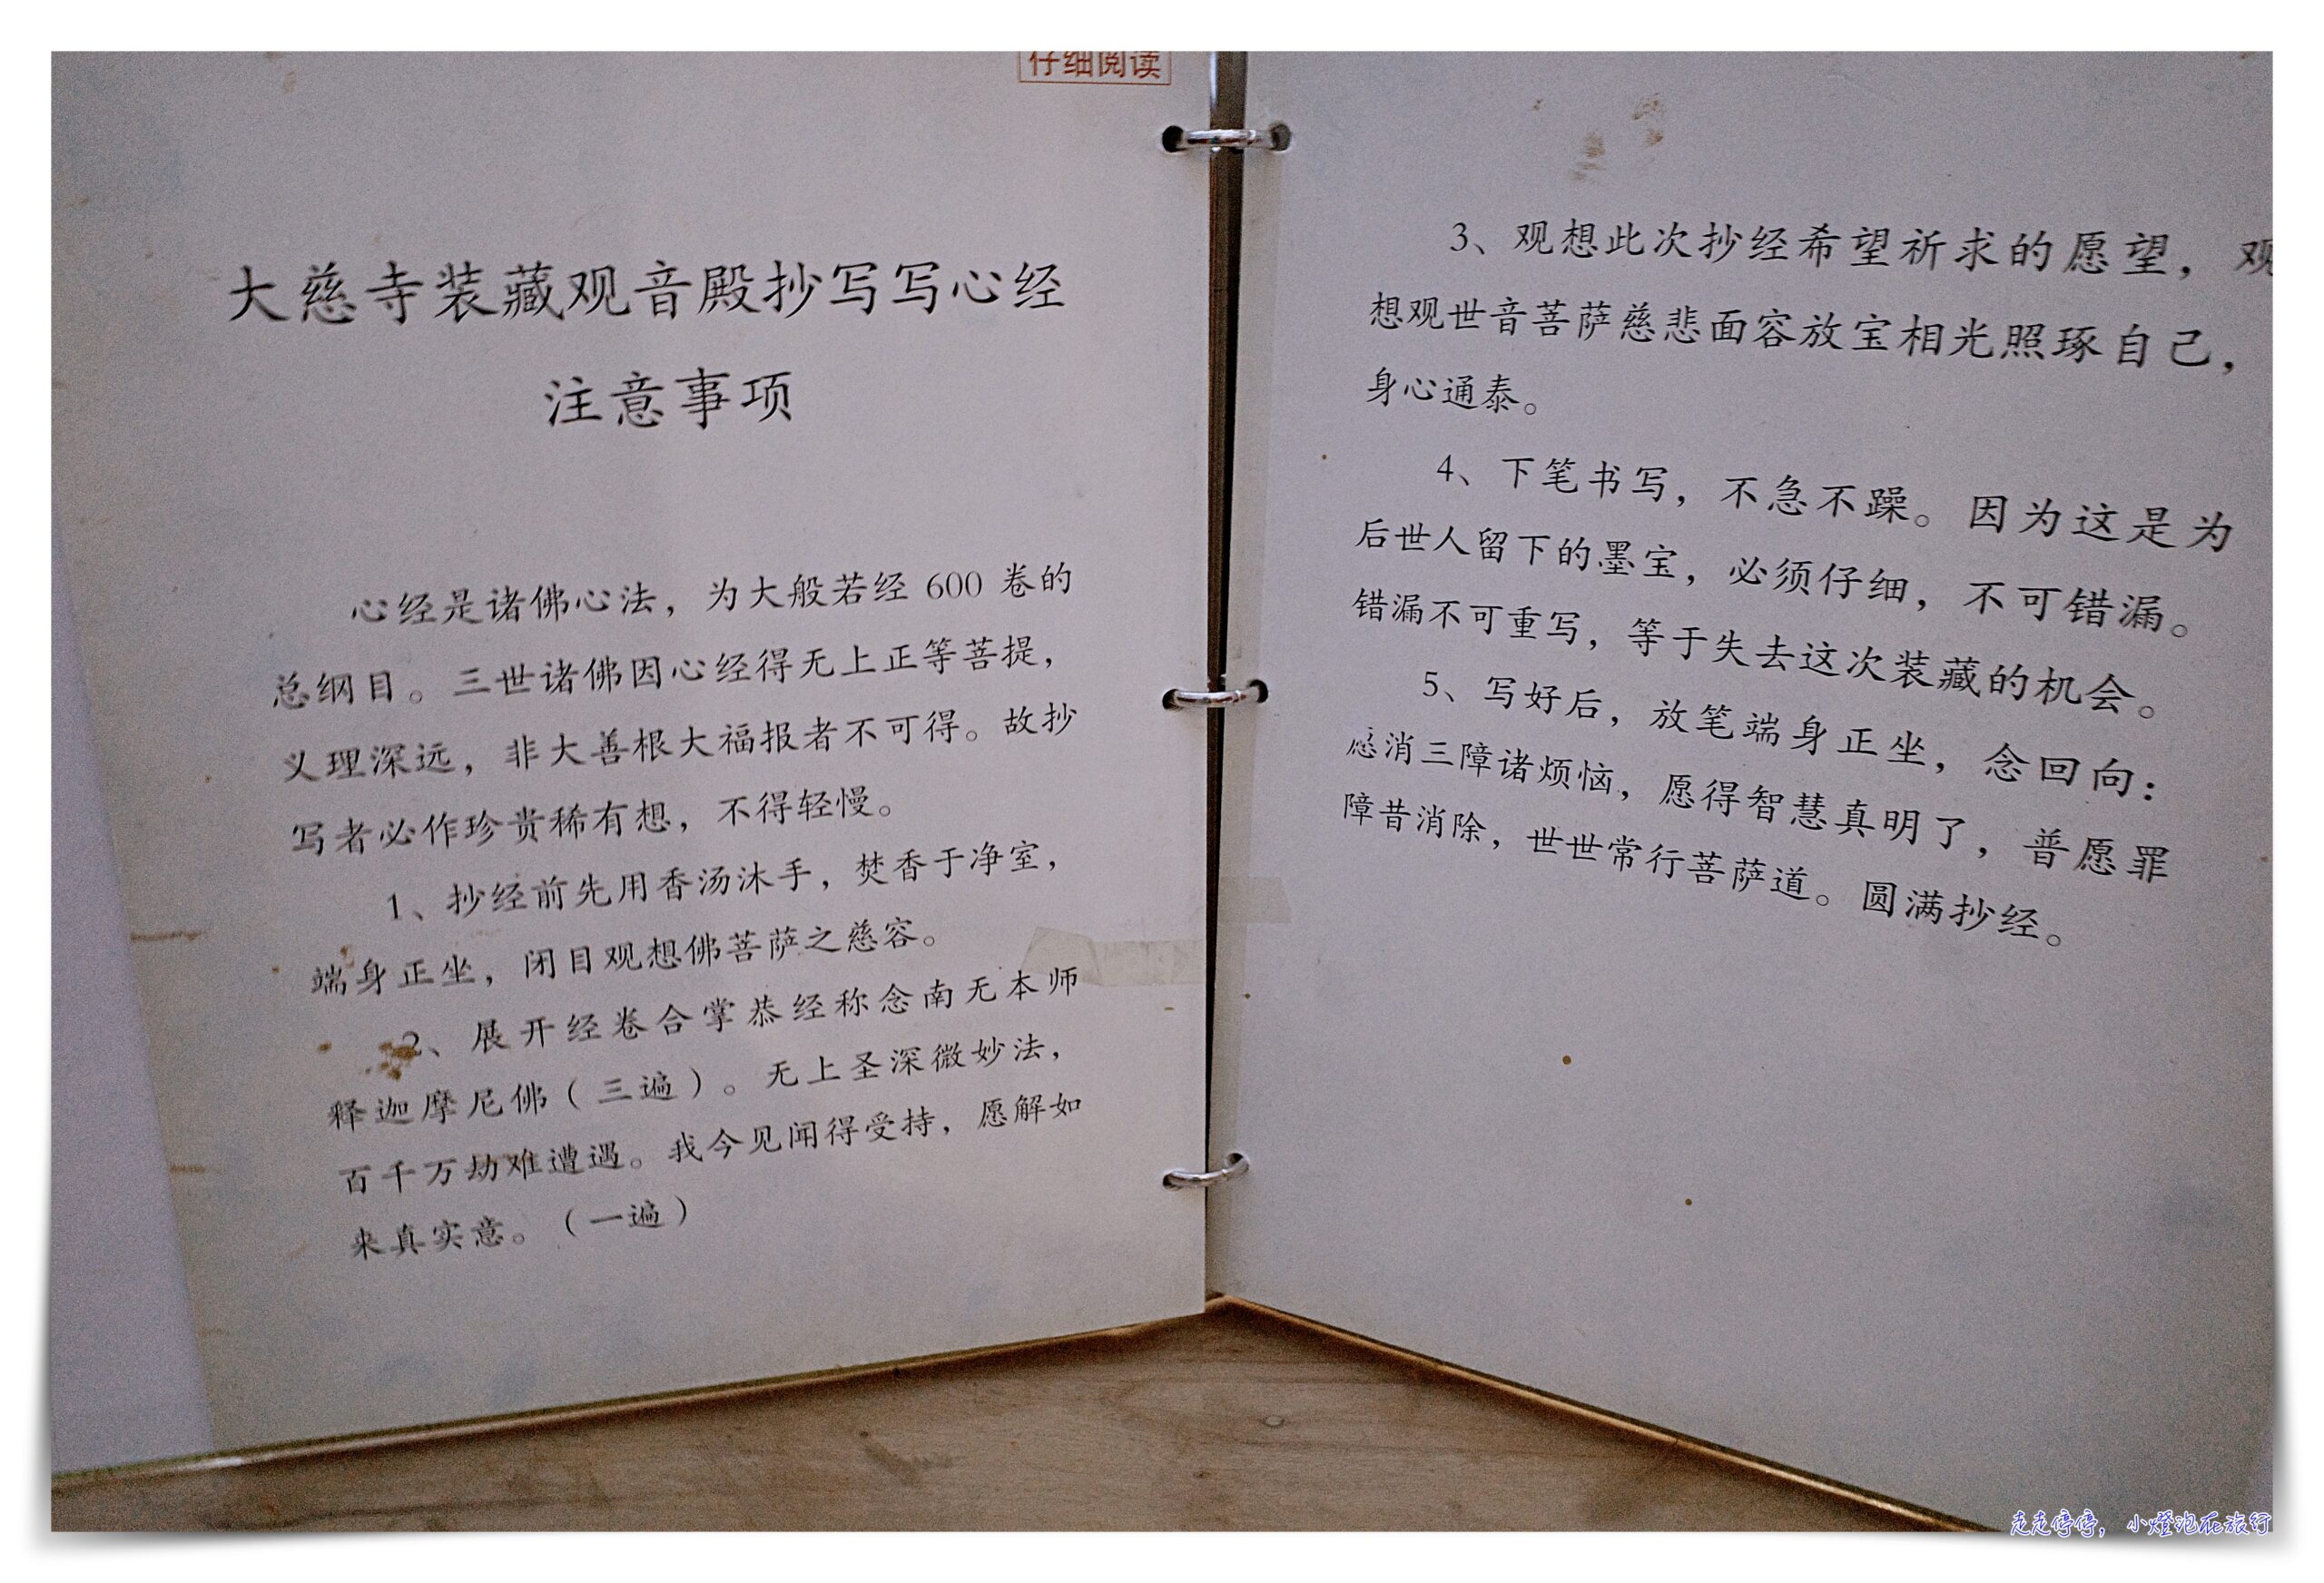 仔细阅读
大慈寺装藏观音殿抄写写心经
注意事项
心经是诸佛心法，为大般若经 600 卷的
总纲目。三世诸佛因心经得无上正等菩提，
义理深远，非大善根大福报者不可得。故抄
写者必作珍贵稀有想，不得轻慢。
1、抄经前先用香汤沐手，焚香于净室，
端身正坐，闭目观想佛菩萨之慈容。
2、展开经卷合掌恭经称念南无本师
释迦摩尼佛（三遍）。无上圣深微妙法，
百千万劫难遭遇。我今见闻得受持，愿解如
来真实意。（一遍）
3、观想此次抄经希望祈求的愿望，观
想观世音菩萨慈悲面容放宝相光照琢自己，
身心通泰。
4、下笔书写，不急不躁。因为这是为
后世人留下的墨宝，必须仔细，不可错漏。
错漏不可重写，等于失去这次装藏的机会。
5、写好后，放笔端身正坐，念回向：
消三障诸烦恼，愿得智慧真明了，普愿罪
障昔消除，世世常行菩萨道。圆满抄经。
走走停停，小燈泡在旅行